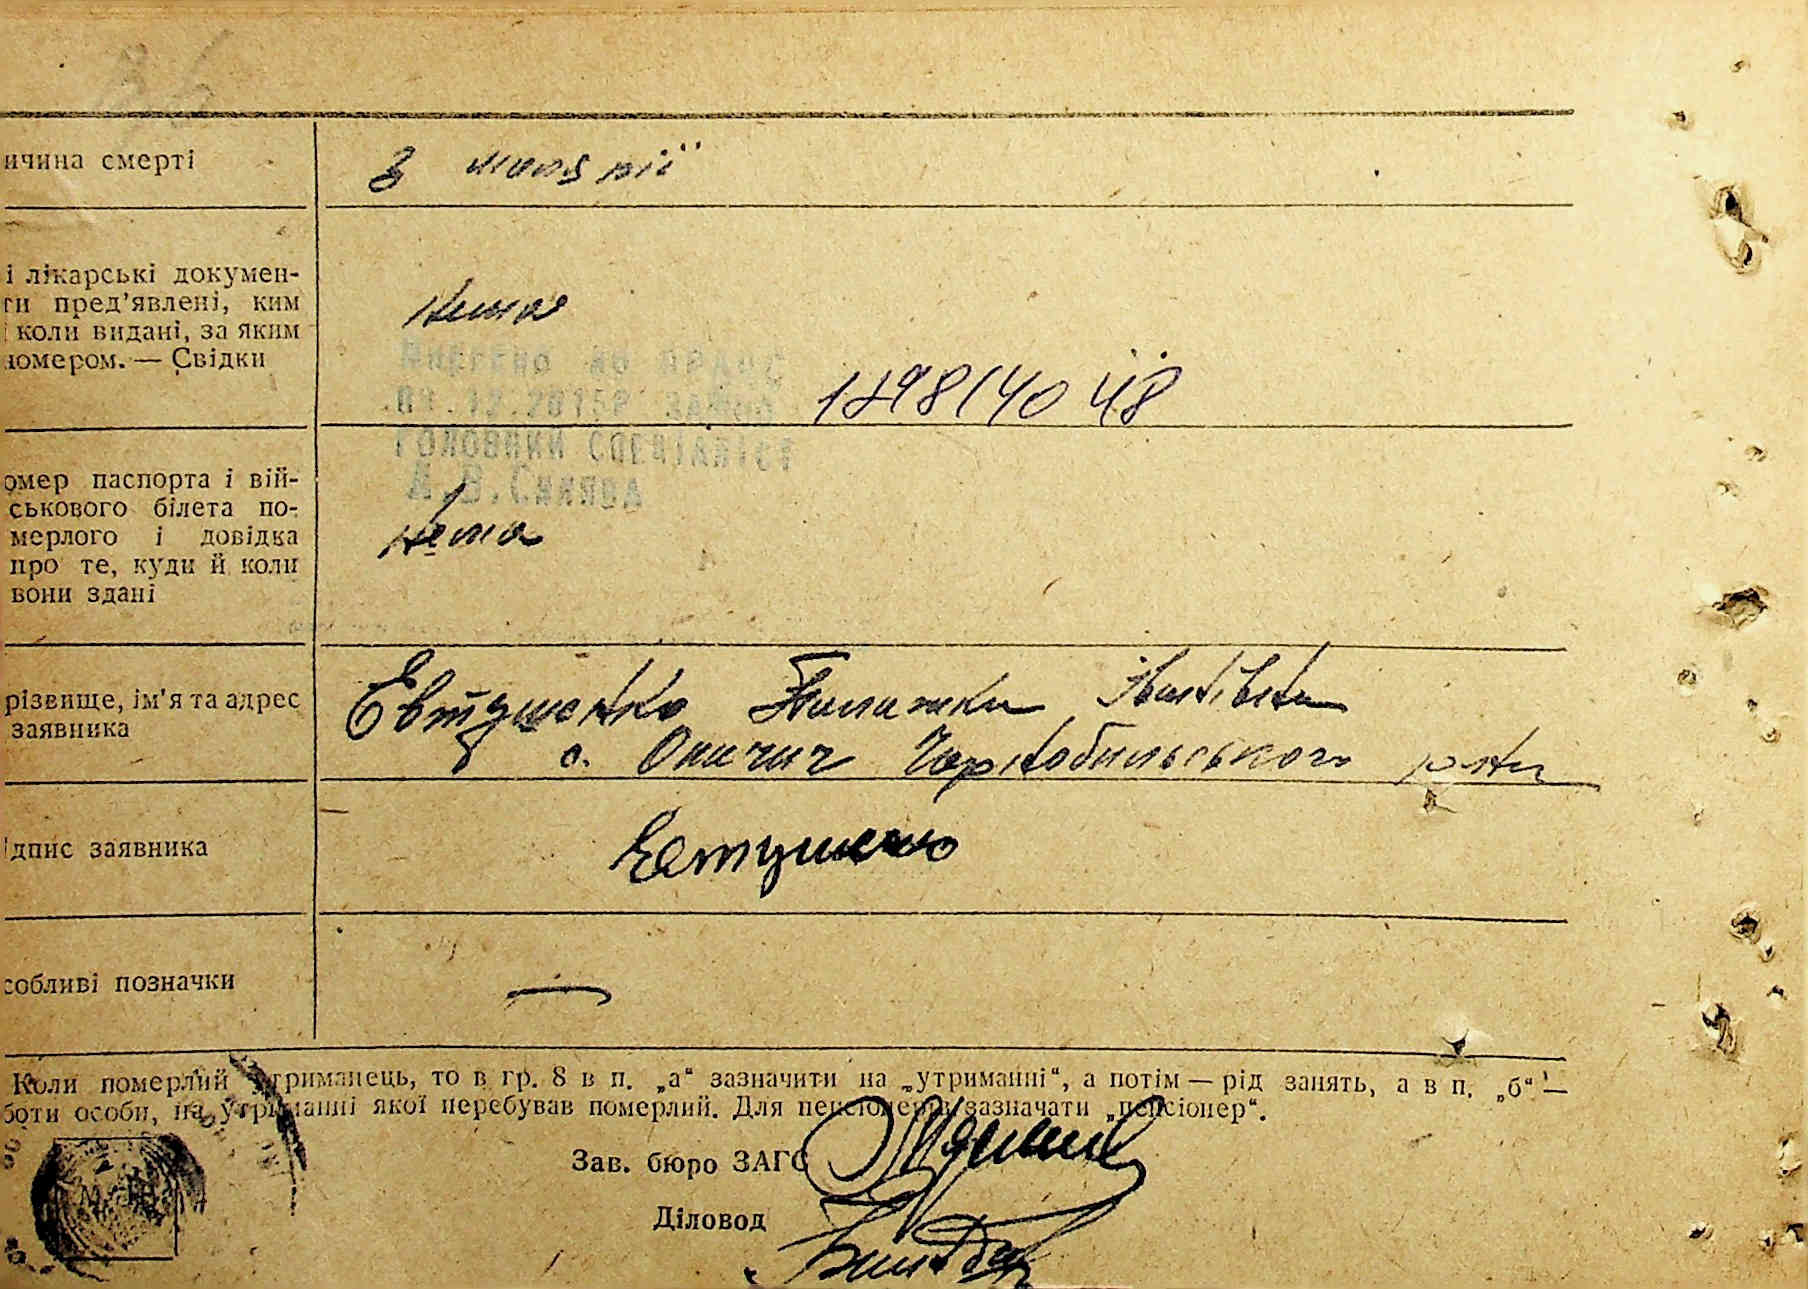 ичина смерті
З малярії
і лікарські докумен-
ти пред'явлені, ким
і коли видані, за яким
номером. — Свідки
Нема
Внесено до ДРАЦС
ГОЛОВНИЙ СПЕЦІАЛІСТ
омер паспорта і вій-
ськового білета по-
мерлого і довідка
про те, куди й коли
вони здані
Нема
різвище, ім'я та адрес
заявника
Євтушенко Палажка Іванівна
с. Опачич Чорнобильського р-ну
ідпис заявника
Євтушенко
собливі позначки
—
Коли померлий утриманець, то в гр. 8 в п. „а“ зазначити на „утриманні“, а потім — рід занять, а в п. „б“ —
боти особи, на утриманні якої перебував померлий. Для пенсіонерів зазначати „пенсіонер“.
Зав. бюро ЗАГС
Діловод